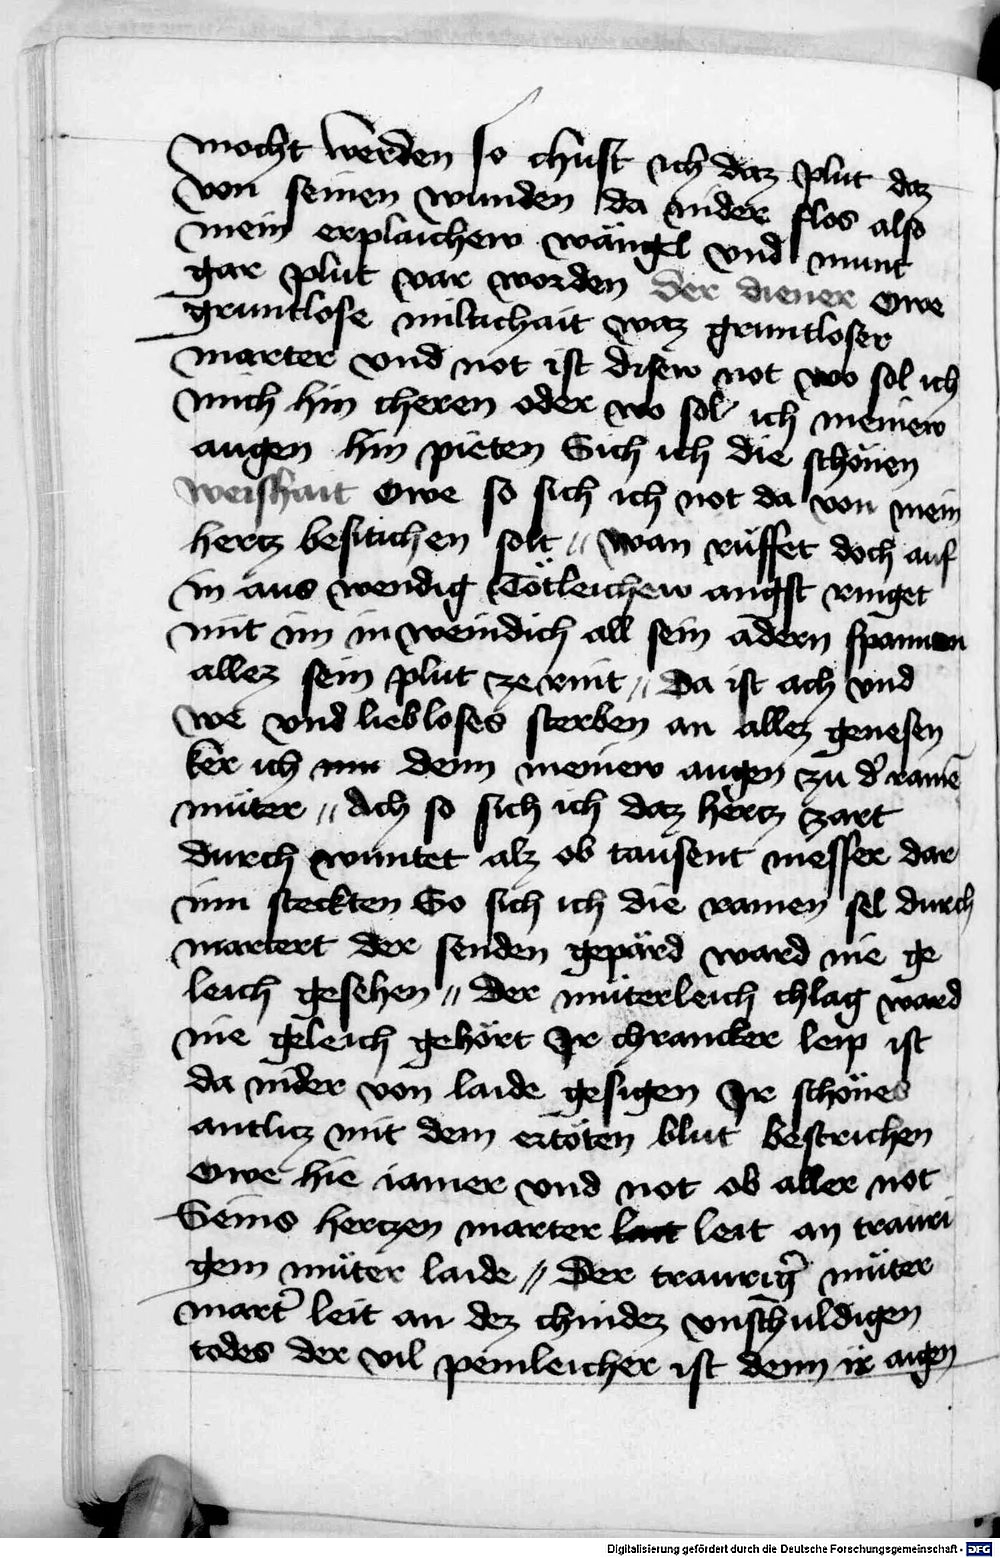 mocht werden so chust ich daz plut daz
von seinen wunden da nider flos also
mein erplaichew wängel vnd munt
gar plut var worden der diener Owe
gruntlose miltichait waz gruntloser
marter vnd not ist disew not wo sol ich
mich hin cheren oder wo sol ich meinew
augen hin pieten Sich ich die schönen
weishait Owe so sich ich not da von mein
hercz besitichen solt // wan rüffet doch auf
in aus wendig Tötleichew angst ringet
mit im inweindich all sein adern spannen
allez sein plut ze rint // Da ist ach vnd
we vnd liebloses sterben an allez genesen
ker ich nm denn meinew augen zu d' rainē
müter // Ach so sich ich daz hercz zart
durch wuntet alz ob tausent messer dar
inn steckten So sich ich die rainen sel durch
martert der senden gepärd ward nie ge
leich gesehen // Der müterleich chlag ward
nie geleich gehört Jr chrancker leip ist
da nider von laide gesigen Jr schönes
antlicz mit dem ertöten blut bestrichen
Owe hie iamer vnd not ob aller not
Seins herczen marter leit an trauri
gem müter laide // Der traurig' müter
mart' leit an dez chindez vnschuldigen
todes der vil peinleicher ist denn ir aigen
Digitalisierung gefördert durch die Deutsche Forschungsgemeinschaft - DFG